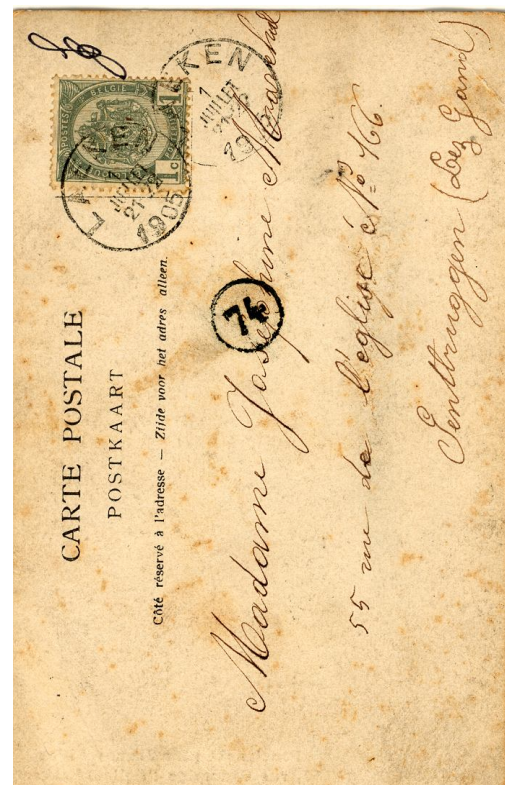 CARTE POSTALE
POSTKAART
Côté réservé à l'adresse — Zijde voor het adres alleen.
POSTES BELGIE
1c 1c
LAEKEN
7
JUILLET
21-22
1905
LAEKEN
7
JUILLET
19
74
Madame Josephine Marechal
55 rue de l'eglise N° 166.
Gentbruggen (Lez Gand)